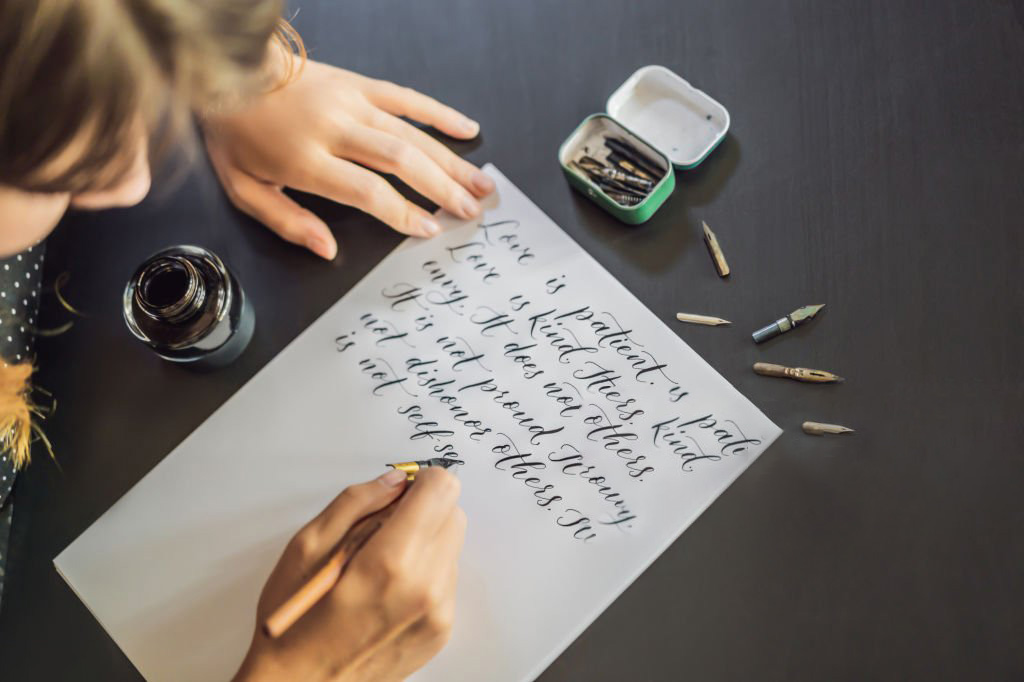 Love is patient. is pati
Love is kind. Thers. kind
envy. It does not others.
It is not proud.
not dishonor others.
is not self-see